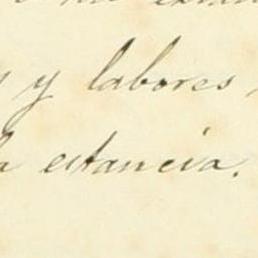 y labores
la estancia.